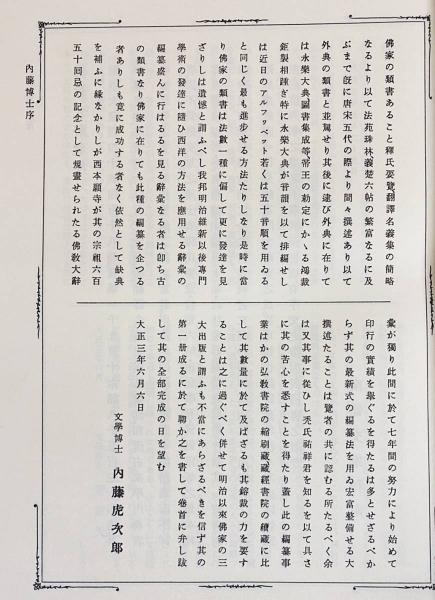 佛家の類書あること釋氏要覽翻譯名義集の簡略
なるより以て法苑珠林義楚六帖の繁富なるに及
ぶまで旣に唐宋五代の際より間々撰述あり以て
外典の類書と並駕せり其後に逮び外典に在りて
は永樂大典圖書集成等帝王の勅定にかゝる鴻裁
鉅製相踵ぎ特に永樂大典が音韻を以て排編せし
は近日のアルファベット若くは五十音順を用ゐる
と同じく最も進步せる方法たりしなり是時に當
り佛家の類書は法數一種に偏して更に發達を見
ざりしは遺憾と謂ふべし我邦明治維新以後專門
學術の發達に隨ひ西洋の方法を應用せる辭彙の
編纂盛んに行はるるを見る辭彙なる者は卽ち古
の類書なり佛家に在りても此種の編纂を企つる
者ありしも竟に成功する者なく依然として缺典
を補ふに緣なかりしが西本願寺が其の宗祖六百
五十回忌の記念として規畫せられたる佛敎大辭
彙が獨り此間に於て七年間の努力により始めて
印行の實績を擧ぐるを得たるは多とせざるべか
らず其の最新式の編纂法を用ゐ宏富整備せる大
撰述たることは覽者の共に認むる所たるべく余
は又其事に從ひし禿氏祐祥君を知るを以て具さ
に其の苦心を悉すことを得たり蓋し此の編纂事
業はかの弘敎書院の縮刷藏藏經書院の續藏に比
して其數量に於て及ばざるも其鎔裁の力を要す
ることは之に過ぐべく併せて明治以來佛家の三
大出版と謂ふも不當にあらざるべきを信ず其の
第一册成るに於て聊か之を書して卷首に弁し跂
して其の全部完成の日を望む
大正三年六月六日
文學博士 內藤虎次郎
內藤博士序